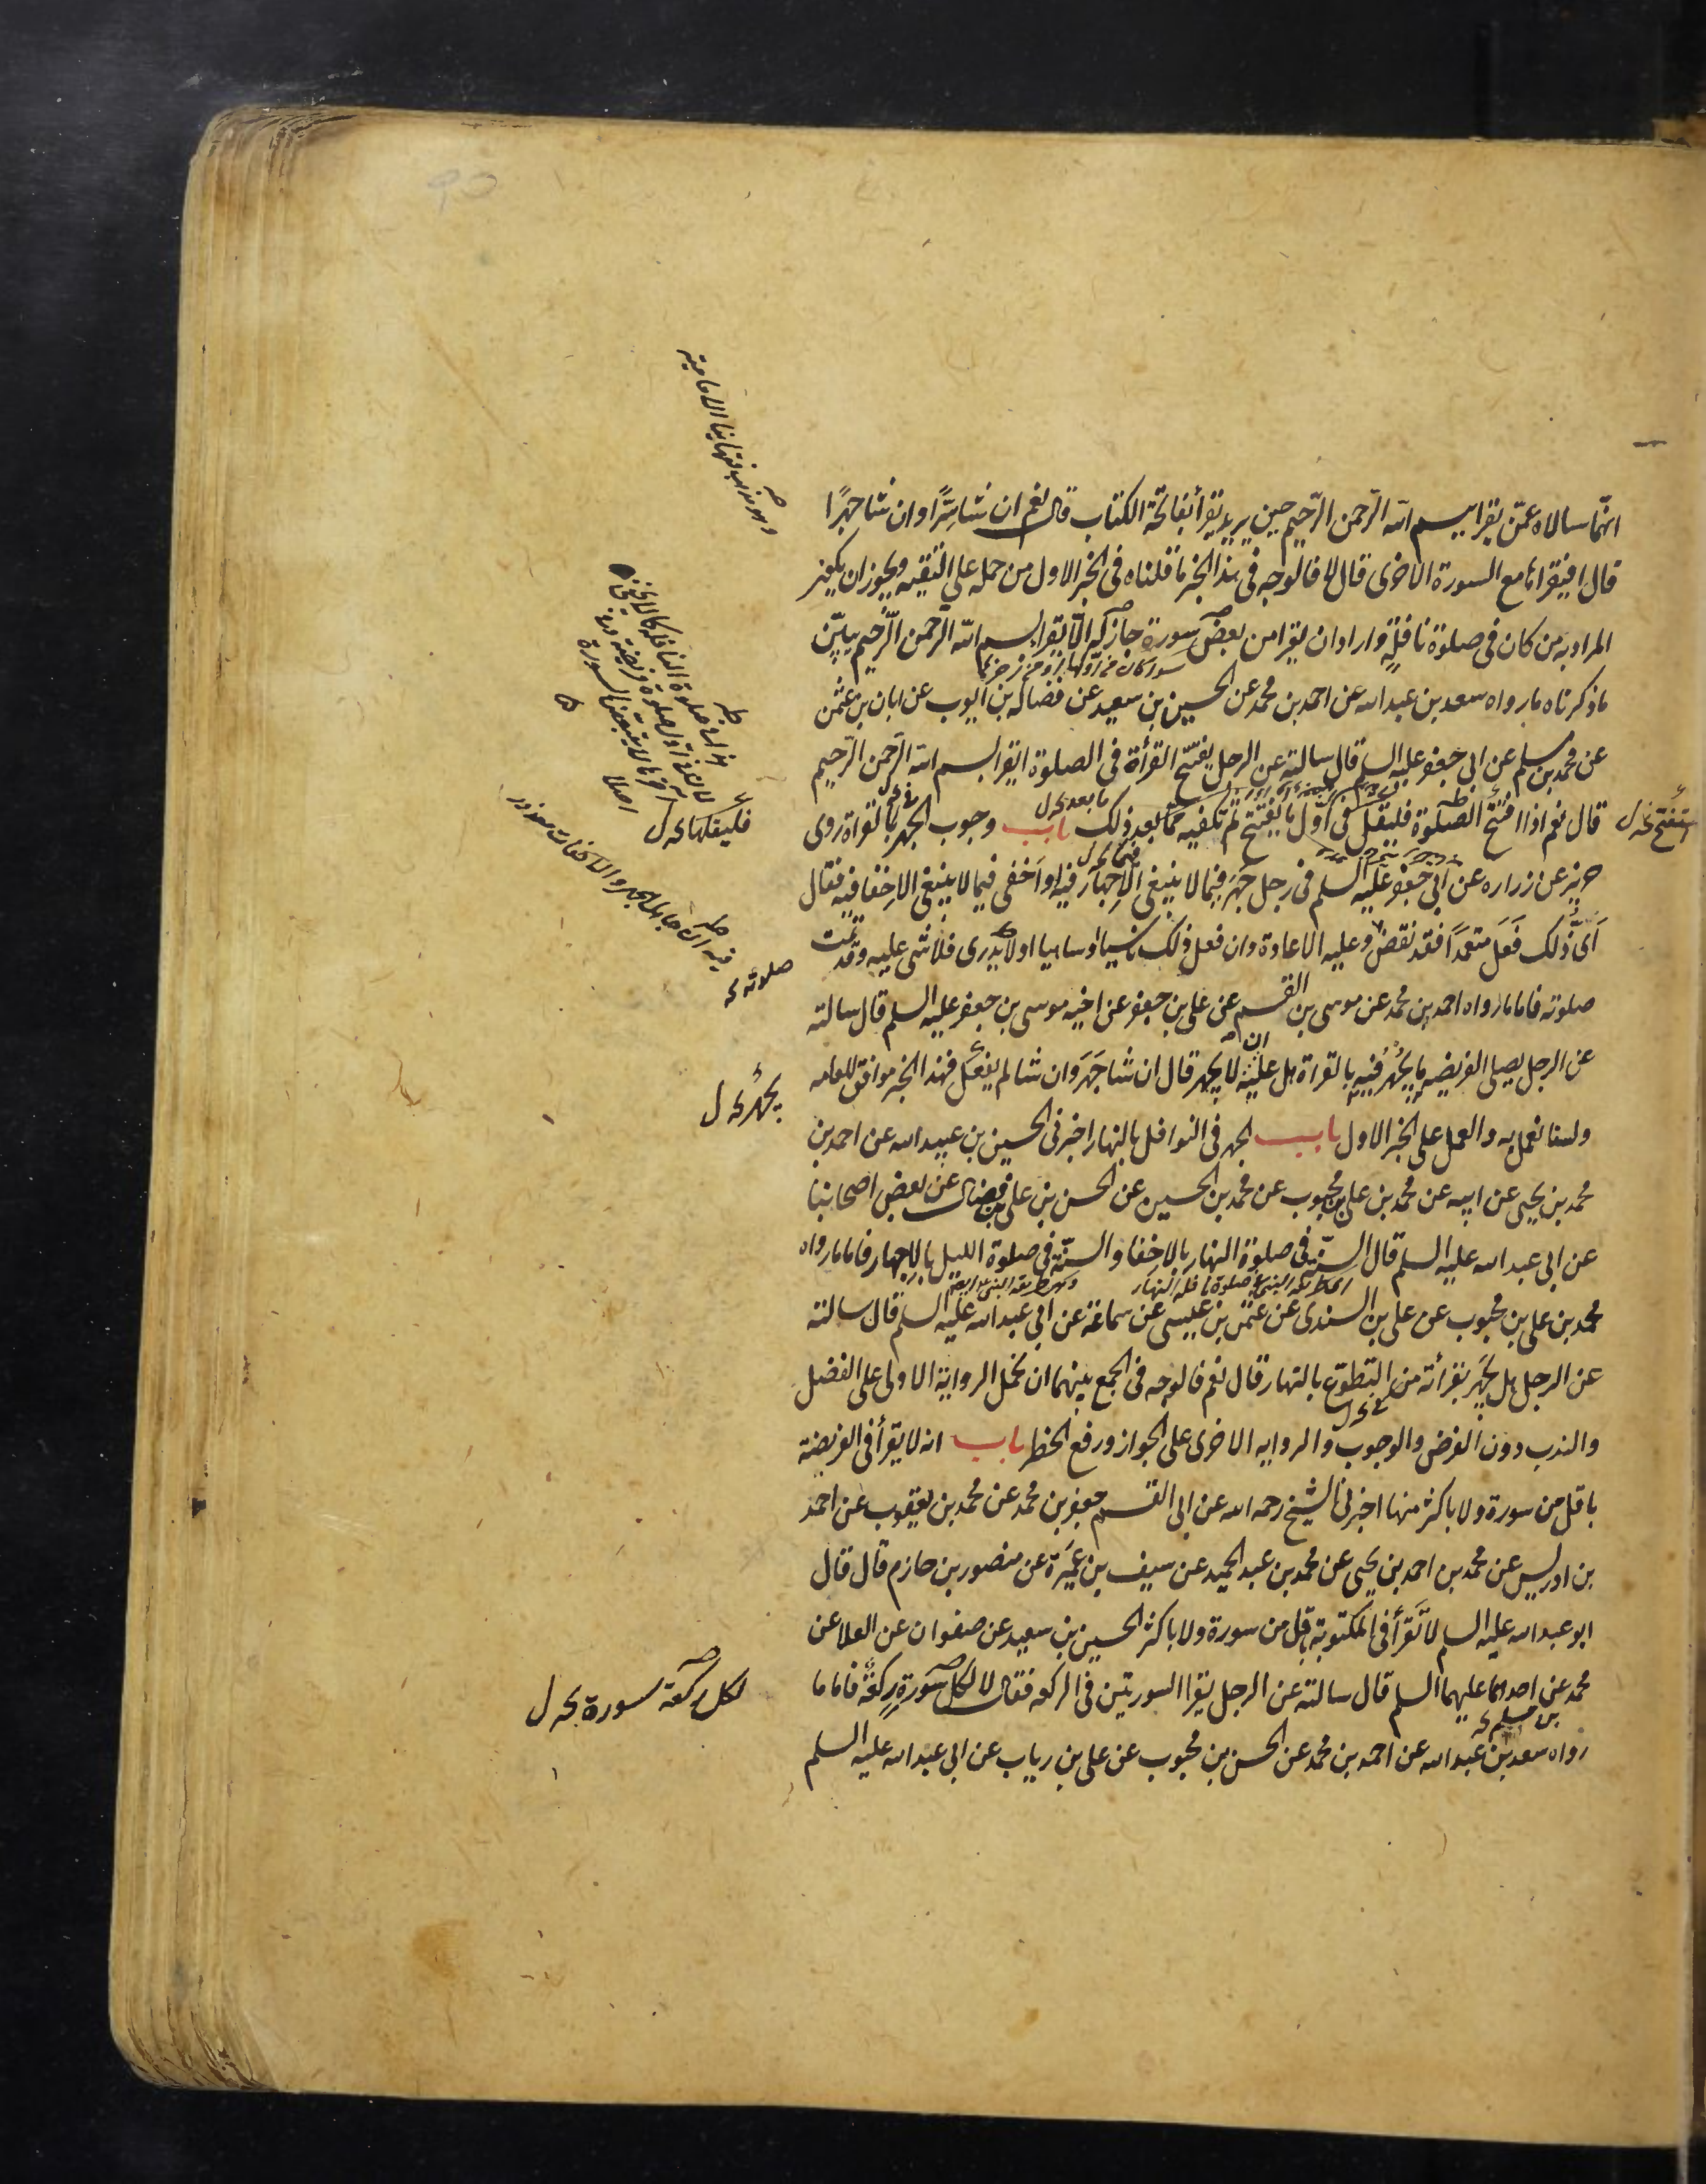 انهما سالاه عمن يقرا بسم الله الرحمن الرحيم حين يريد يقرأ بفاتحة الكتاب قال نعم ان شا سرًا وان شا جهرًا
قال افيقراها مع السورة الاخرى قال لا فالوجه في هذا الخبر ما قلناه في الخبر الاول من حمله علي التقيه ويجوز ان يكون
المراد به من كان في صلوة نافلة واراد ان يقرا من بعض سورة جاز له الا يقرا بسم الله الرحمن الرحيم يبين
ماذكرناه مارواه سعد بن عبدالله عن احمد بن محمد عن الحسين بن سعيد عن فضاله بن ايوب عن ابان بن عثمن
عن محمد بن مسلم عن ابي جعفر عليه السلم قال سالته عن الرجل يفتتح القرأة في الصلوة ايقرا بسم الله الرحمن الرحيم
قال نعم اذا افتتح الصلوة فليقل في اول ما يفتتح ثم تكفيه مما بعد ذلك باب وجوب الجهر بالقراة روى
حريز عن زراره عن ابي جعفر عليه السلم في رجل جهر فيما لا ينبغي الاجهار فيه او اخفى فيما لا ينبغي الاخفا فيه فقال
اىّ ذلك فعل متعمدًا فقد نقض وعليه الاعادة وان فعل ذلك ناسيا او ساهيا او لا يدرى فلا شى عليه وقد تمت
صلوته فاما مارواه احمد بن محمد عن موسى بن القسم عن على بن جعفر عن اخيه موسى بن جعفر عليه السلم قال سالته
عن الرجل يصلي الفريضه ما يجهر فيه بالقراة هل عليه ان لا يجهر قال ان شا جهر وان شا لم يفعل فهذا الخبر موافق للعامه
ولسنا نعمل به والعمل على الخبر الاول باب الجهر في النوافل بالنهار اخبرنى الحسين بن عبيدالله عن احمد بن
محمد بن يحيى عن ابيه عن محمد بن على بن محبوب عن محمد بن الحسين عن الحسن بن على بن فضال عن بعض اصحابنا
عن ابي عبدالله عليه السلم قال السنّة في صلوة النهار بالاخفا والسنّة في صلوة الليل بالاجهار فاما مارواه
محمد بن على بن محبوب عن على بن السندى عن عثمن بن عيسى عن سماعة عن ابي عبدالله عليه السلم قال سالته
عن الرجل هل يجهر بقرأته من التطوع بالنهار قال نعم فالوجه في الجمع بينهما ان نحمل الرواية الاولى على الفضل
والندب دون الفرض والوجوب والروايه الاخرى على الجواز ورفع الحظر باب انه لا يقرأ في الفريضة
باقل من سورة ولا باكثر منها اخبرنى الشيخ رحمه الله عن ابي القسم جعفر بن محمد عن محمد بن يعقوب عن احمد
بن ادريس عن محمد بن احمد بن يحيى عن محمد بن عبد الحميد عن سيف بن عميرة عن منصور بن حازم قال قال
ابو عبدالله عليه السلم لا تقرأ في المكتوبة باقل من سورة ولا باكثر الحسين بن سعيد عن صفوان عن العلا عن
محمد عن احدهما عليهما السلم قال سالته عن الرجل يقرا السورتين في الركعه فقال لا لكل سورة ركعة فاما ما
رواه سعد بن عبدالله عن احمد بن محمد عن الحسن بن محبوب عن على بن رياب عن ابي عبدالله عليه السلم
صلوته
لكل ركعة سورة